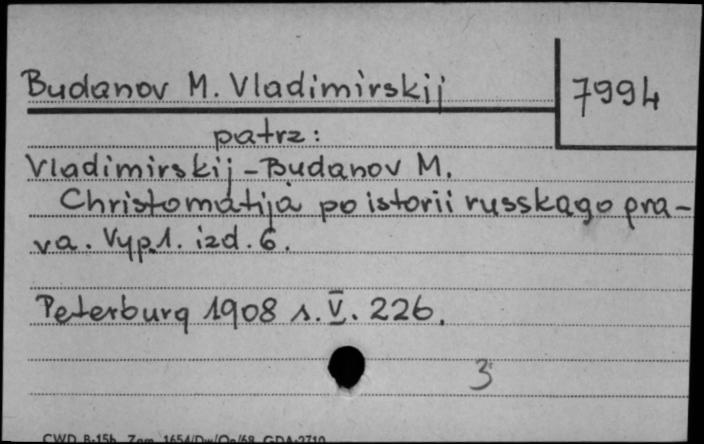 Budanov M. Vladimirskij
7994
patrz:
Vladimirskij-Budanov M.
Christomatija po istorii russkago pra-
va. Vyp.1. izd. 6.
Peterburg 1908 s. V. 226.
3
CWD B-15h Zam. 1654/Dw/Op/68 GDA-2710